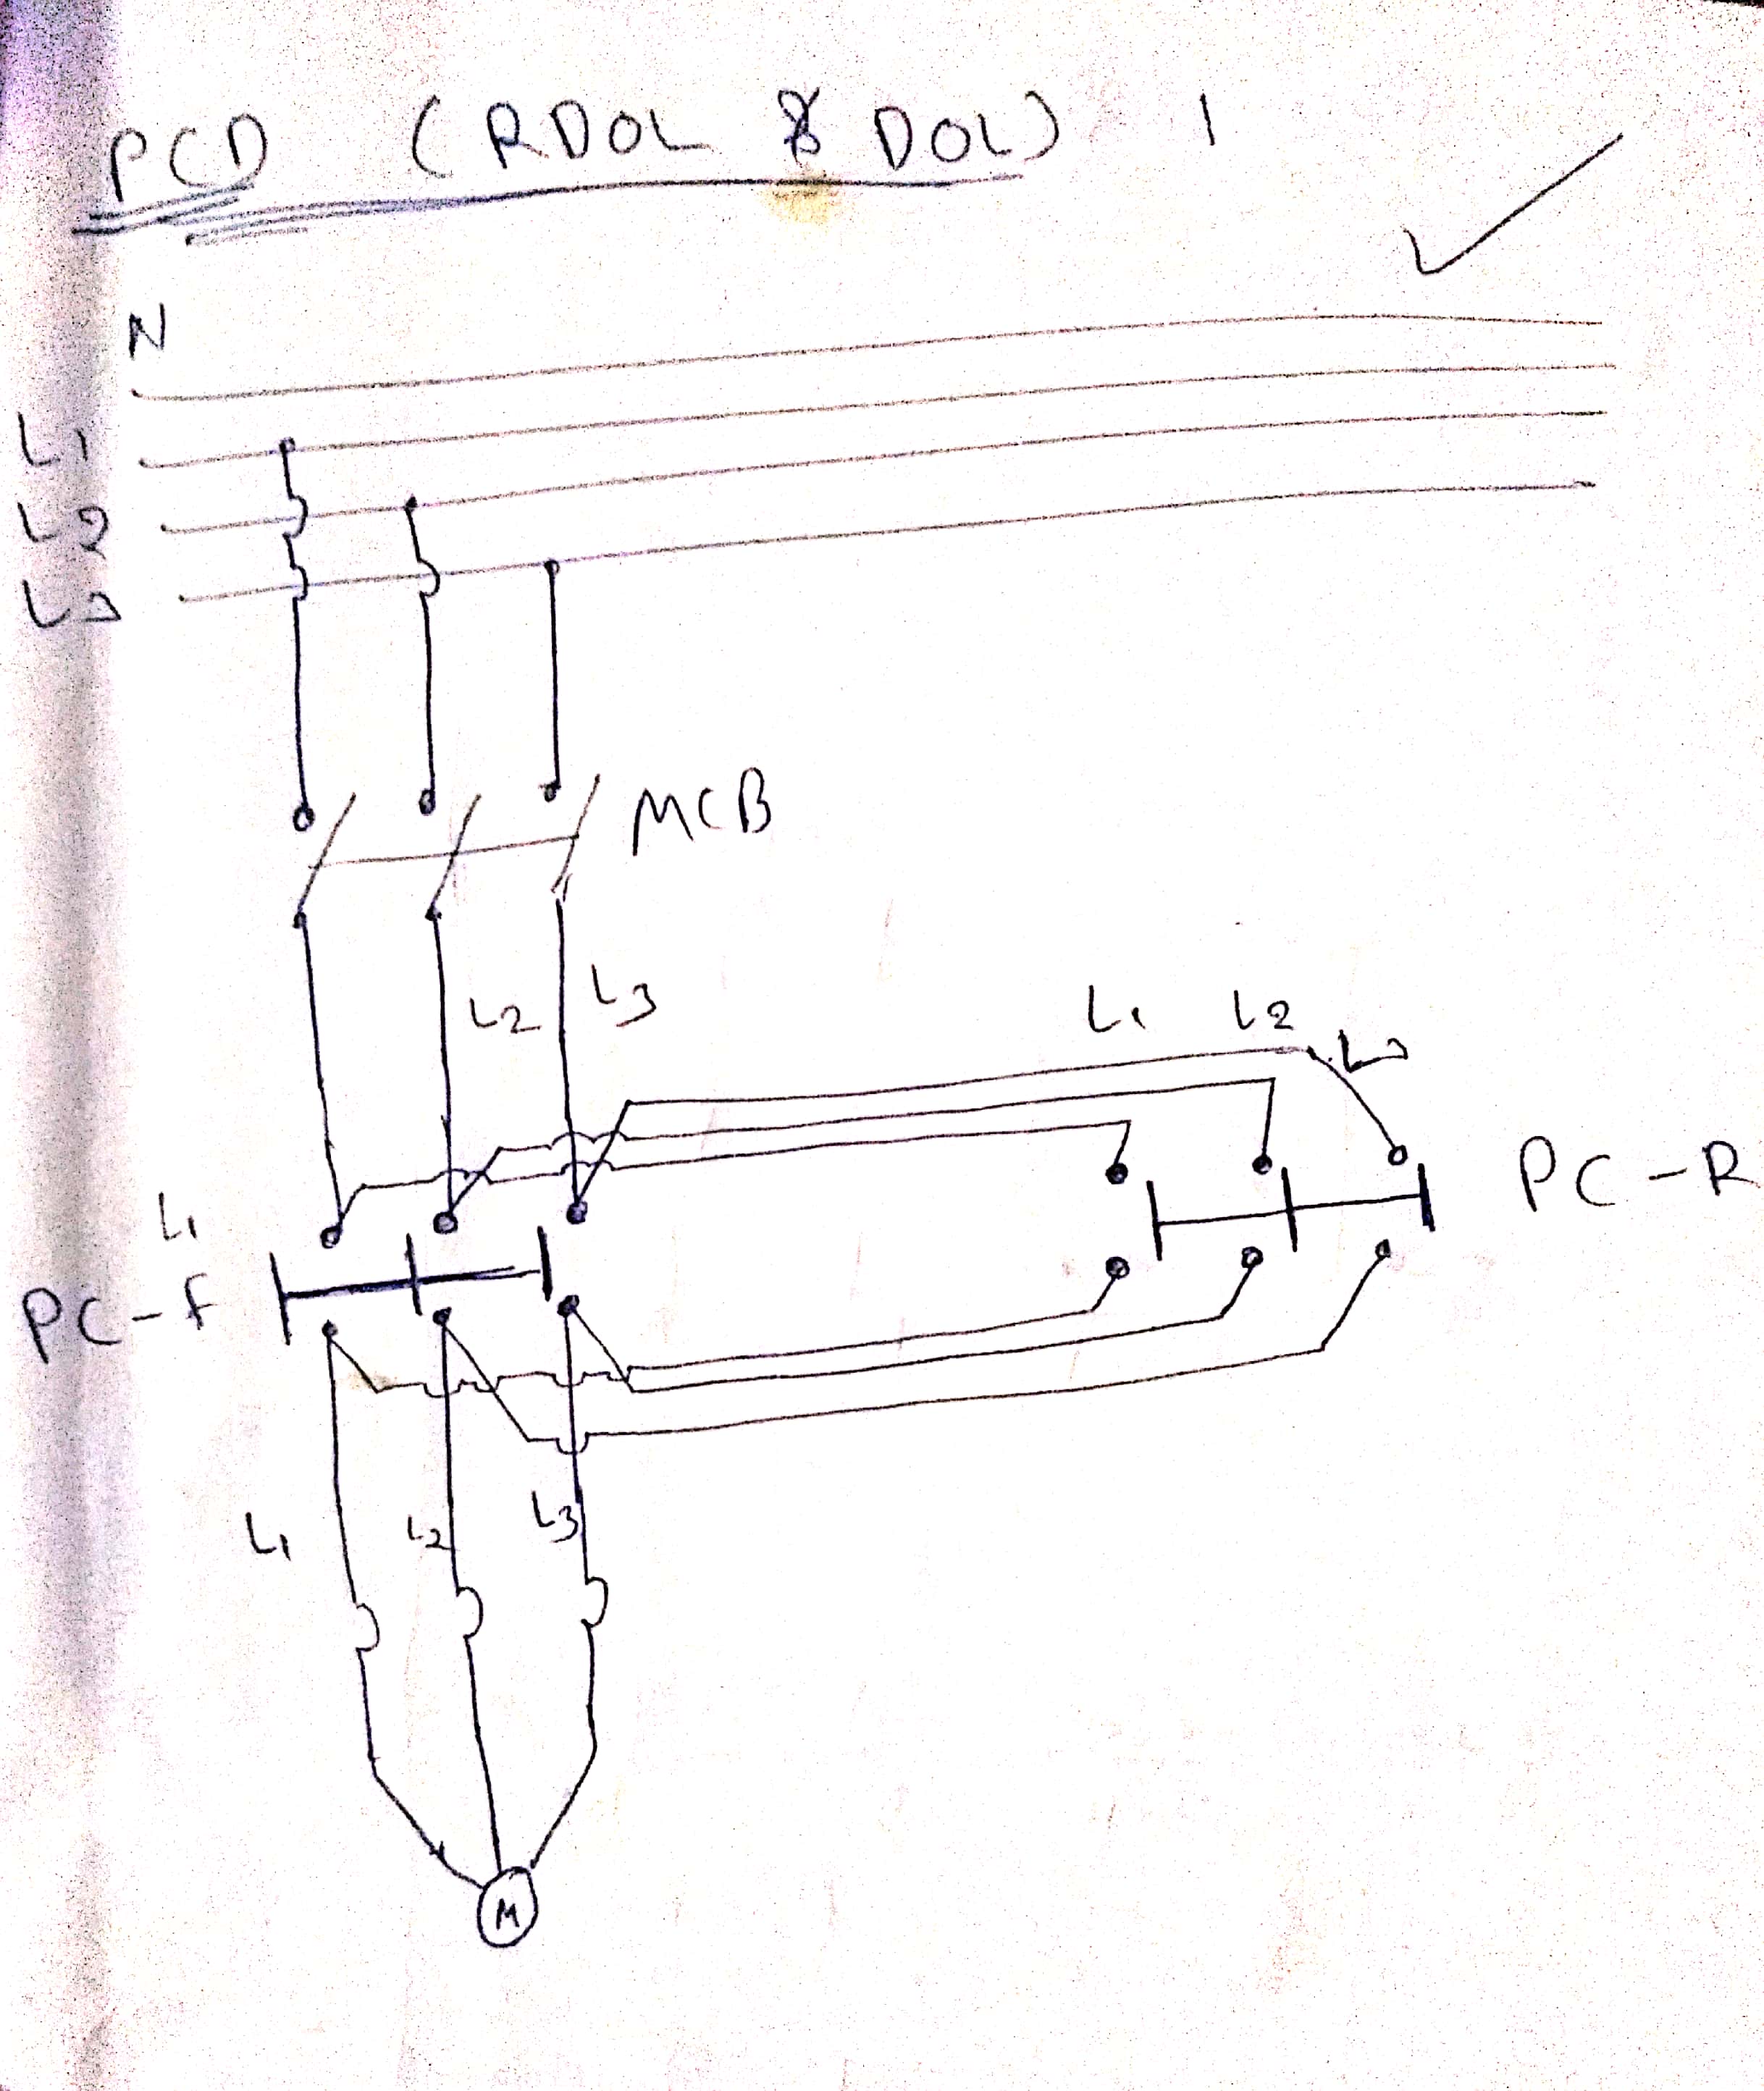 PCD (RDOL & DOL) 1
N
L1
L2
L3
MCB
L2 L3
L1 L2 L3
PC-R
L1
PC-f
L1 L2 L3
M